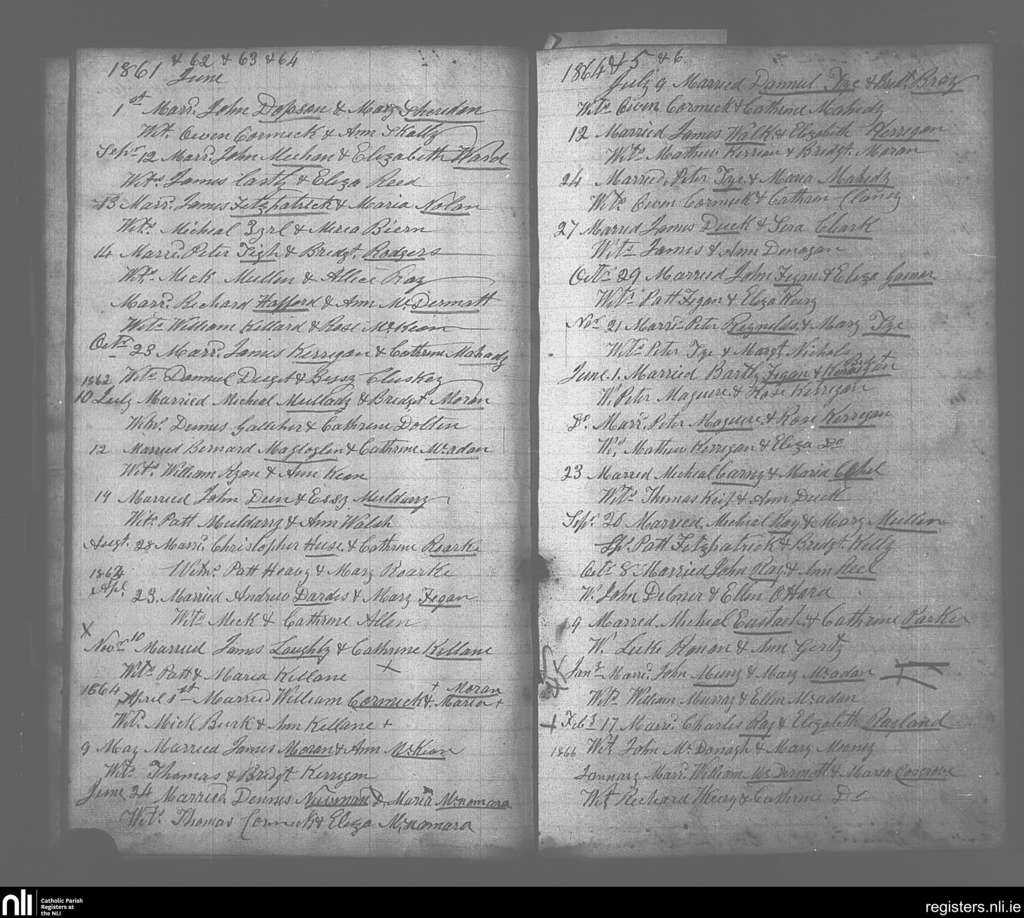 1861 & 62 & 63 & 64
June
1st Marr. John & Mary Sheridan
Wit. Owen Cormick & Ann Skally
Sepr. 12 Marr. John Meehan & Elizabeth Ward
Wits. James Casty & Eliza Reed
13 Marr. James Fitzpatrick & Maria Nolan
Wits. Micheal & Biern
14 Marr. Peter Tigh & Bridgt. Rodgers
Wits. Mick Mullen & Allice Kay
Marr. Richard Hafford & Ann Mc Dermott
Wits. William Killard & Rose McKeon
Octr. 23 Marr. James Kerrigan & Cathrine Mahady
1862 Wits. Danniel & Bessy Cluskey
10 July Married Micheal Mullady & Bridgt. Moran
Wits. Dennis Galliher & Cathrine Dolten
12 Married Bernard & Cathrine Mcadan
Wits. William & Ann Kean
14 Married John Dein & Essy Muldary
Wits. Patt Muldarry & Ann Walsh
Augt. 28 Marr. Christopher Huse & Cathrine Roarke
Witns. Patt Heavy & Mary Roarke
1862
Apl. 23 Married Andrew Dardes & Mary Fegan
Wits. Mick & Cathrine Allen
X
Novr. 10 Married James Loughly & Cathrine Killane
Wits. Patt & Maria Killane X
1864 + Moran
April 1st Married William Cormick & Maria +
Wit. Mick Burk & Ann Killane +
9 May Married James Moran & Ann McKeon
Wits. Thomas & Bridgt Kerrigan
June 24 Married Dennis & Maria Mcnamara
Wits. Thomas Cormick & Eliza Mcnamara
1864 & 5 & 6
July 9 Married Danniel Tye & Bray
Wits. Owen Cormick & Cathrine Mahedy
12 Married James Wilk & Elizabeth Kerrigan
Wits. Mathew Kerrian & Bridgt. Moran
24 Married Peter Tye & Maria Mahedy
Wits. Owen Cormick & Cathron Clancy
27 Married James Duck & Sera Clark
Wits. James & Ann Donagan
Octr. 29 Married John Fegan & Eliza
Wits. Patt Fegan & Eliza
Novr. 21 Marr. Peter Reynolds & Mary Tye
Wits. Peter Tye & Margt Nichols
June 1. Married Barth. Fegan &
W. Peter Maguire & Rose Kerrigan
Do. Marr. Peter Maguire & Rose Kerrigan
Ws. Mathew Kerrigan & Eliza Do
23 Married Micheal Carney & Maria Cahel
Wits. Thomas & Ann Duck
Sepr. 26 Married Micheal Kay & Mary Mullen
Sps. Patt Fitzpatrick & Bridgt Kelly
Octr. 8 Married John Hay & Ann
W. John & Ellen O Hara
19 Married Micheal Eustach & Cathrine Parke
W. Luke Ronan & Ann Gerty
Jany. Marr. John & Mary Mcadan
Wits. William Murray & Ellen Mcadan
+ Feb. 17 Marr. Charles Kay & Elizabeth Ragland
1866 Wit John McDonagh & Mary Mooney
January Marr. William McDermott & Maria Cosgrove
Wit Richard & Cathrine Do
nli
Catholic Parish
Registers at
the NLI
registers.nli.ie